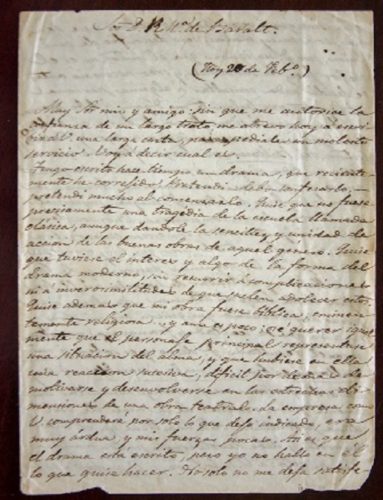 Sr. D. R. Ma. de Baralt.
(Hoy 20 de Febo.)
Muy Sr. mio y amigo: Sin que me autorice la
de un largo trato me atrevo hoy a escri
bir a V. una larga carta, para pedirle un molesto
servicio. Voy a decir cual es.
Tengo escrito hace tiempo un drama, que reciente
mente he corregido. Pretendi debo confesarlo
pretendi mucho al comenzarlo. Quise que no fuese
precisamente una tragedia de la escuela llamada
clasica, aunque dandole la sencillez y unidad de
accion de las buenas obras de aquel genero. Quise
que tuviera el interes y algo de la forma del
drama moderno, sin recurrir a complicaciones
ni a inverosimilitudes de que suelen adolecer estos.
Quise ademas que mi obra fuese biblica, eminen
temente religiosa y
mente que el personaje principal representase
una situacion del alma, y que hubiera en ella
una reaccion sucesiva, dificil por
motivarse y desenvolverse en las estrechas di
mensiones de una obra teatral. La empresa como
V. comprenderá por solo lo que dejo indicado, era
muy ardua y mis fuerzas pocas. Asi es que
el drama esta escrito, pero yo no hallo en el
lo que quise hacer. No solo no me deja satisfe